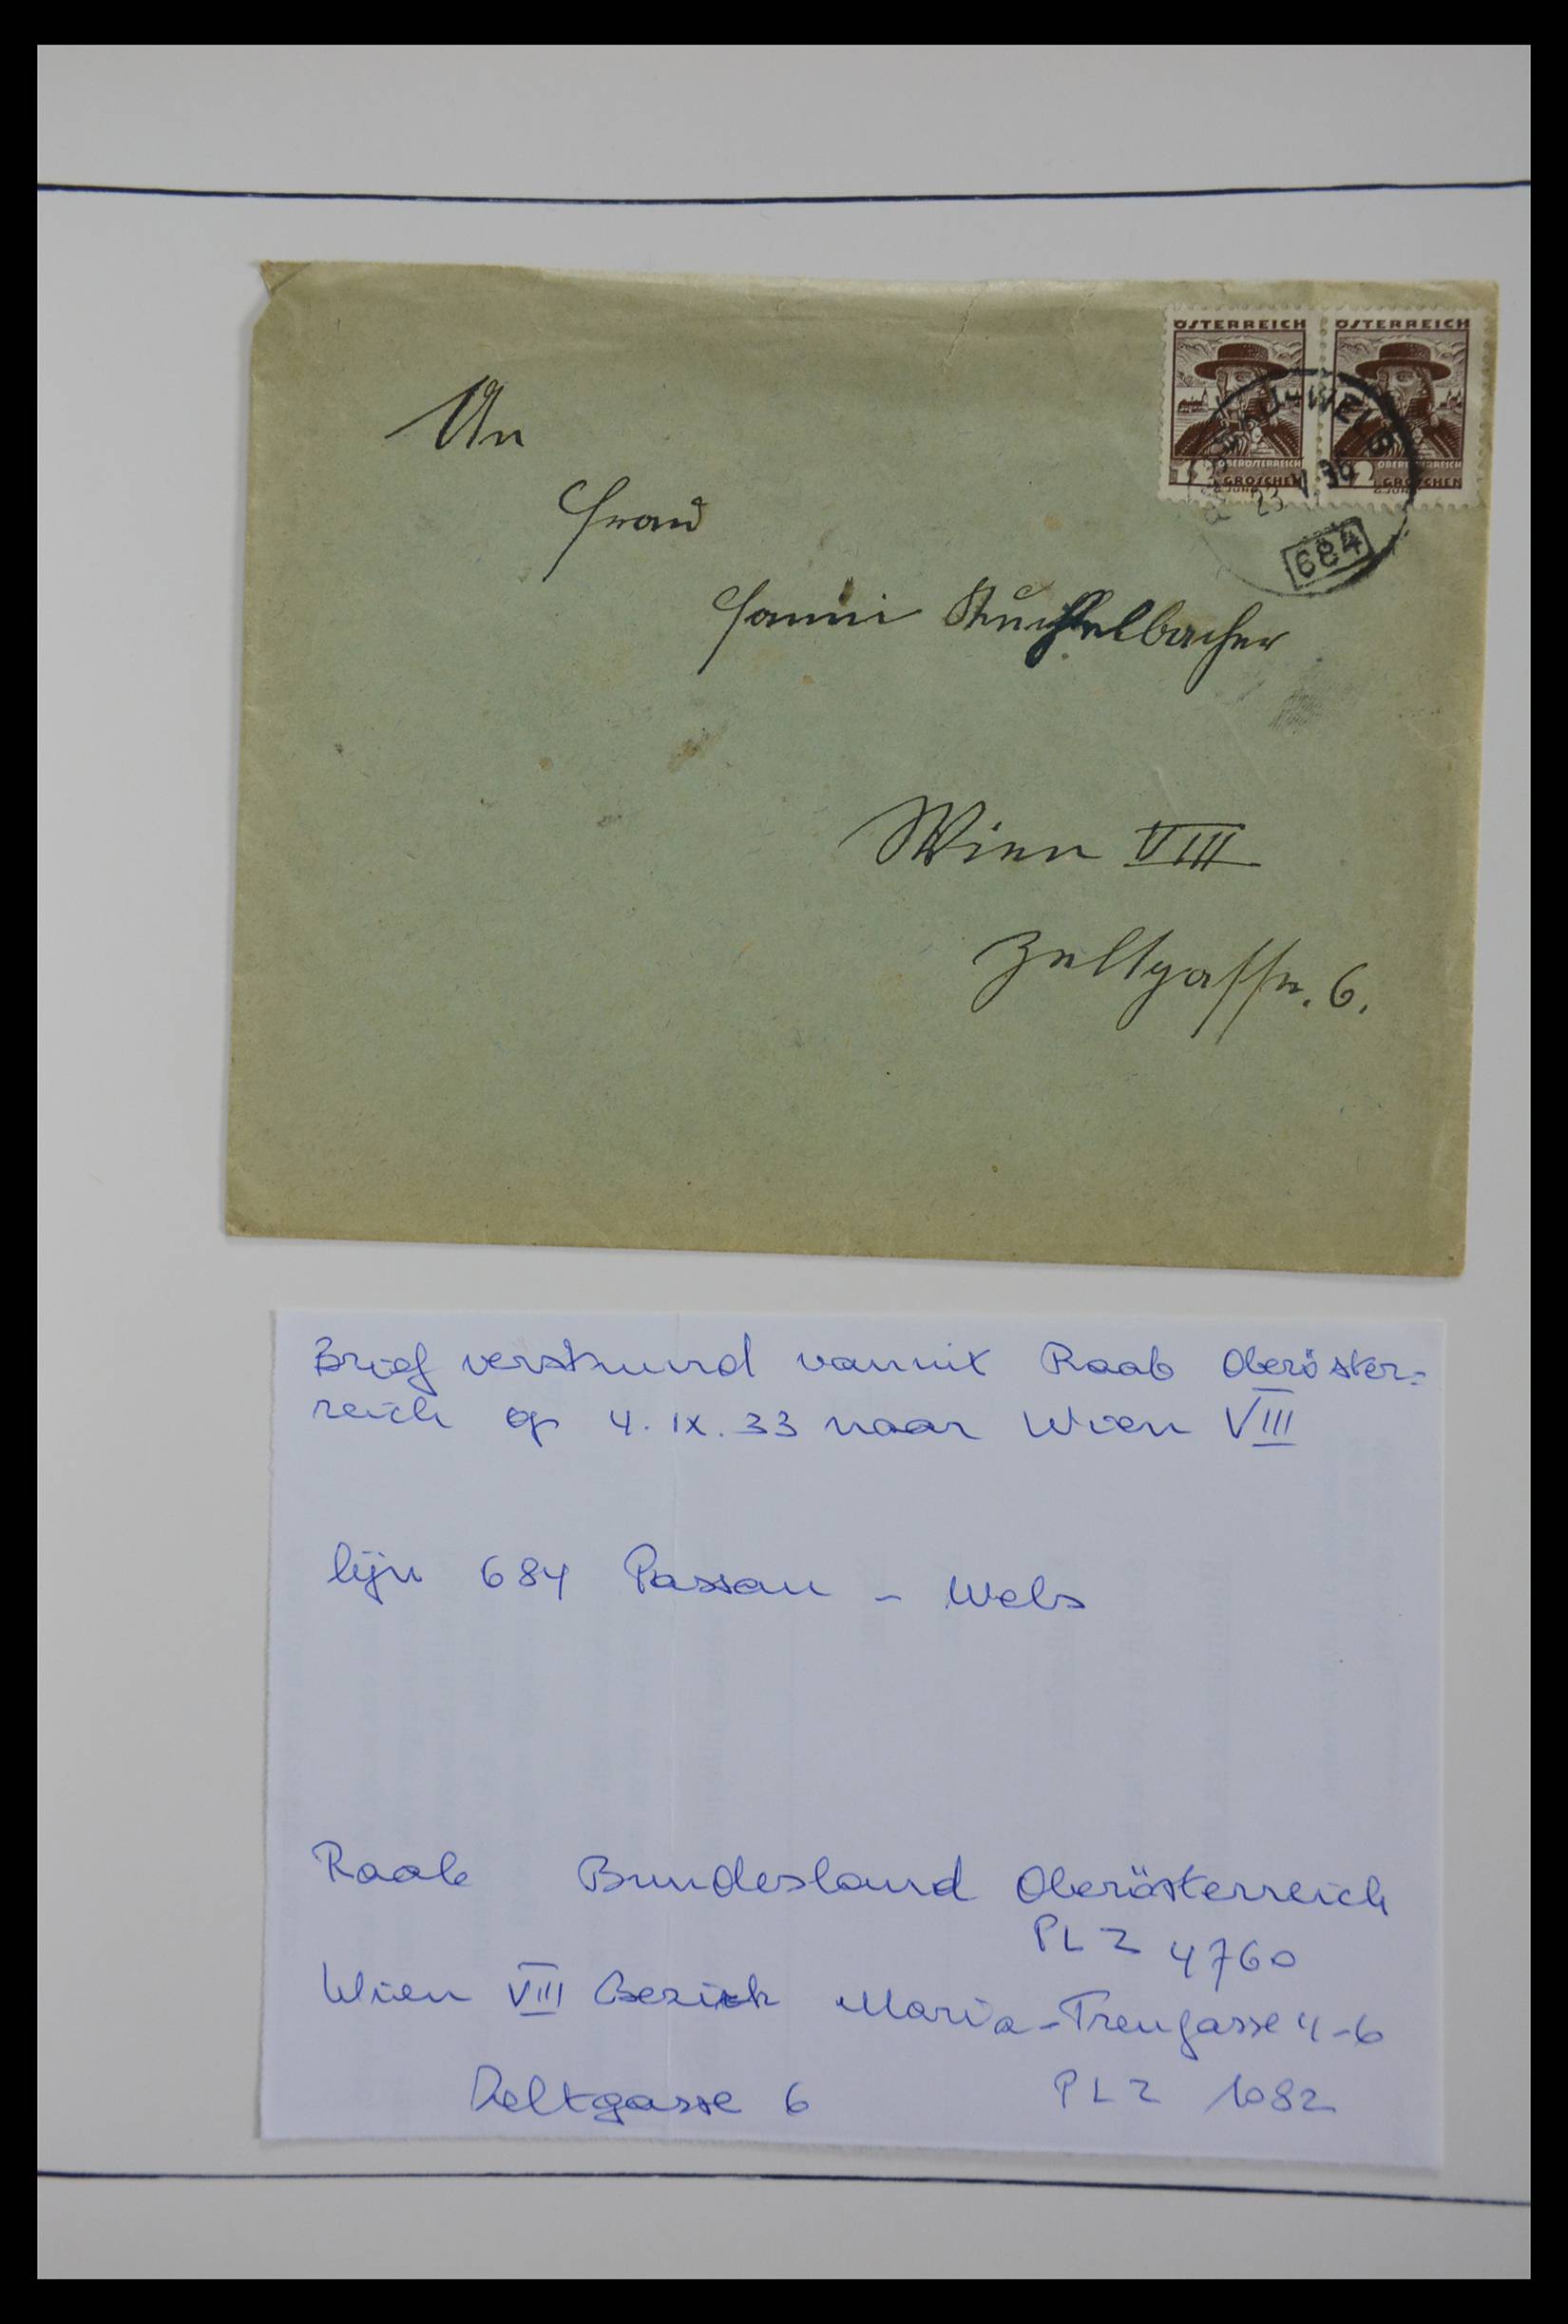 ÖSTERREICH ÖSTERREICH
OBERÖSTERREICH OBERÖSTERREICH
12 GROSCHEN 12 GROSCHEN
PASSAU-WELS
23 V 36
684
An
Frau
Fanni
Wien VIII
Zeltgasse. 6.
Brief verstuurd vanuit Raab Oberöster=
reich op 4.IX.33 naar Wien VIII
lijn 684 Passau - Wels
Raab Bundesland Oberösterreich
PLZ 4760
Wien VIII Bezirk Maria-Treugasse 4-6
Zeltgasse 6 PLZ 1082